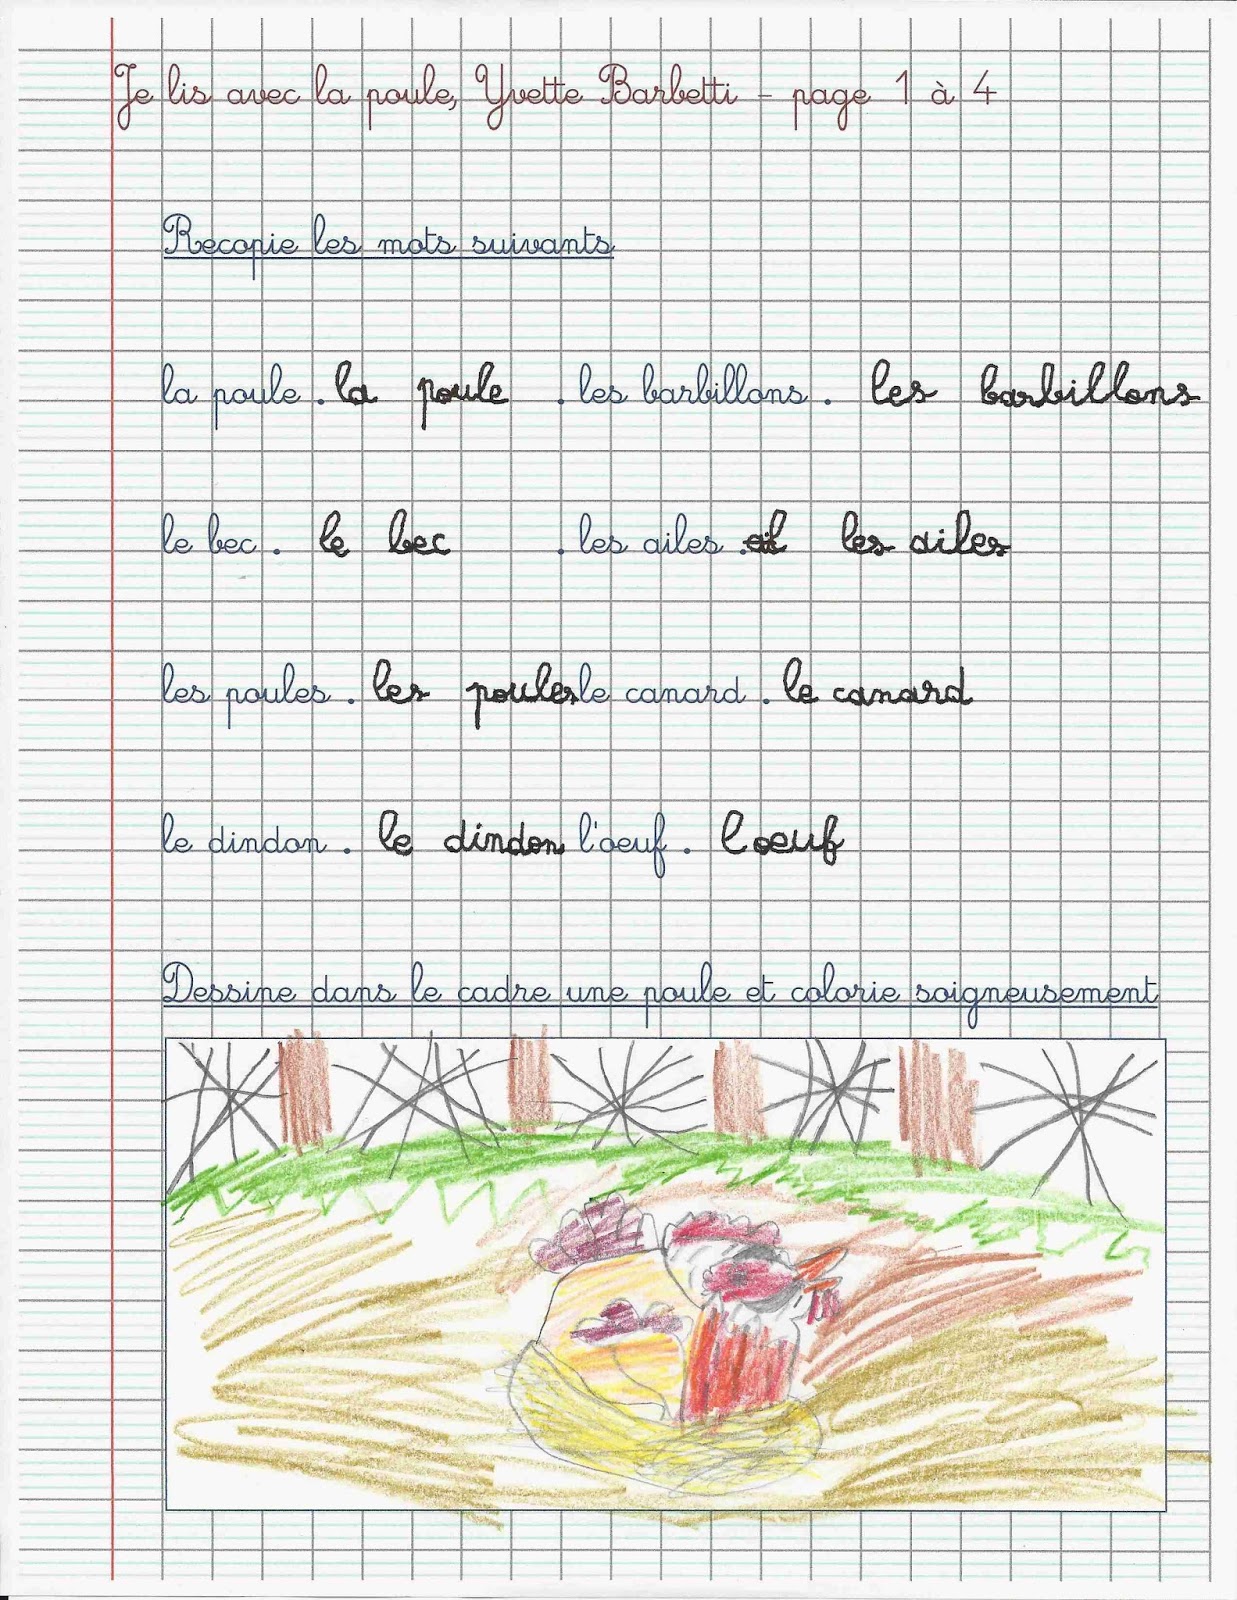 Je lis avec la poule, Yvette Barbetti - page 1 à 4
Recopie les mots suivants
la poule . la poule . les barbillons . les barbillons
le bec . le bec . les ailes . les ailes
les poules . les poules le canard . le canard
le dindon . le dindon l'oeuf . l oeuf
Dessine dans le cadre une poule et colorie soigneusement